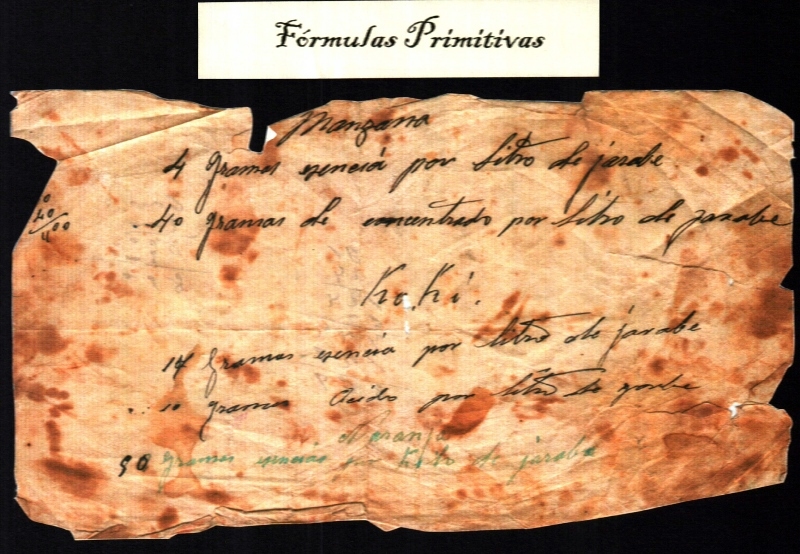 Fórmulas Primitivas
Manzana
4 gramos esencia por litro de jarabe
40 gramos de concentrado por litro de jarabe
Ko.Ki.
14 gramos esencia por litro de jarabe
10 gramos Acido por litro de jarabe
Naranja
90 gramos esencia por Kilo de jarabe